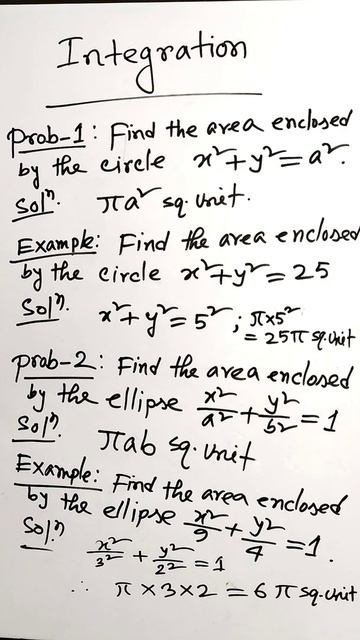 Integration
Prob-1: Find the area enclosed
by the circle x²+y²=a².
Solⁿ. πa² sq. unit.
Example: Find the area enclosed
by the circle x²+y²=25
Solⁿ. x²+y²=5²; π×5²
= 25π sq. unit
Prob-2: Find the area enclosed
by the ellipse x²/a² + y²/b² = 1
Solⁿ. πab sq. unit
Example: Find the area enclosed
by the ellipse x²/9 + y²/4 = 1.
Solⁿ. x²/3² + y²/2² = 1
∴ π × 3 × 2 = 6 π sq. unit